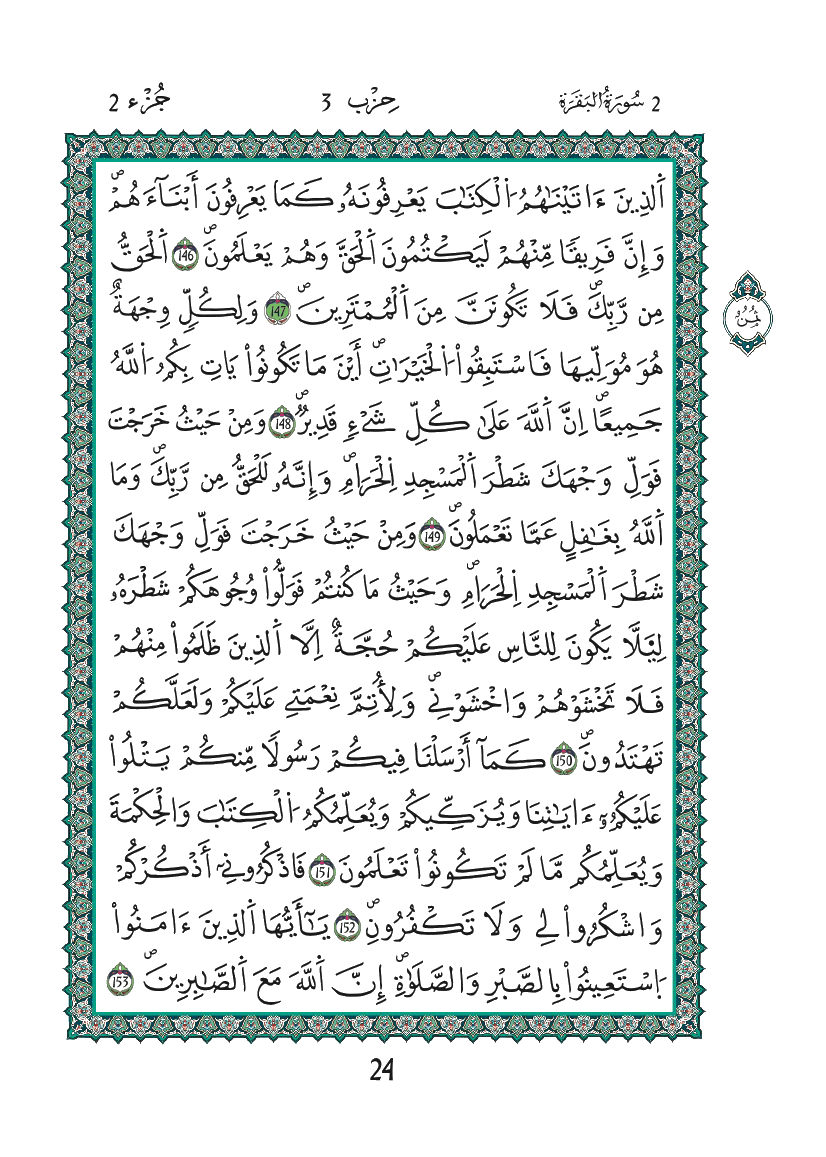 2 سُورَةُ الْبَقَرَةِ حِزْب 3 جُزْء 2
اَ۬لذِينَ ءَاتَيْنَٰهُمُ اُ۬لْكِتَٰبَ يَعْرِفُونَهُۥ كَمَا يَعْرِفُونَ أَبْنَآءَهُمْۖ
وَإِنَّ فَرِيقاٗ مِّنْهُمْ لَيَكْتُمُونَ اَ۬لْحَقَّ وَهُمْ يَعْلَمُونَۖ 146 اَ۬لْحَقُّ
مِن رَّبِّكَۖ فَلَا تَكُونَنَّ مِنَ اَ۬لْمُمْتَرِينَۖ 147 وَلِكُلّٖ وِجْهَةٌ
ثُمُن
هُوَ مُوَلِّيهَا فَاسْتَبِقُواْ اُ۬لْخَيْرَٰتِۖ أَيْنَ مَا تَكُونُواْ يَاتِ بِكُمُ اُ۬للَّهُ
جَمِيعاًۖ اِنَّ اَ۬للَّهَ عَلَىٰ كُلِّ شَےْءٖ قَدِيرٞۖ 148 وَمِنْ حَيْثُ خَرَجْتَ
فَوَلِّ وَجْهَكَ شَطْرَ اَ۬لْمَسْجِدِ اِ۬لْحَرَامِۖ وَإِنَّهُۥ لَلْحَقُّ مِن رَّبِّكَۖ وَمَا
اَ۬للَّهُ بِغَٰفِلٍ عَمَّا تَعْمَلُونَۖ 149 وَمِنْ حَيْثُ خَرَجْتَ فَوَلِّ وَجْهَكَ
شَطْرَ اَ۬لْمَسْجِدِ اِ۬لْحَرَامِۖ وَحَيْثُ مَا كُنتُمْ فَوَلُّواْ وُجُوهَكُمْ شَطْرَهُۥ
لِيَ۬لَّا يَكُونَ لِلنَّاسِ عَلَيْكُمْ حُجَّةٌ اِلَّا اَ۬لذِينَ ظَلَمُواْ مِنْهُمْ
فَلَا تَخْشَوْهُمْ وَاخْشَوْنِےۖ وَلِأُتِمَّ نِعْمَتِے عَلَيْكُمْ وَلَعَلَّكُمْ
تَهْتَدُونَۖ 150 كَمَآ أَرْسَلْنَا فِيكُمْ رَسُولاٗ مِّنكُمْ يَتْلُواْ
عَلَيْكُمُۥٓ ءَايَٰتِنَا وَيُزَكِّيكُمْ وَيُعَلِّمُكُمُ اُ۬لْكِتَٰبَ وَالْحِكْمَةَ
وَيُعَلِّمُكُم مَّا لَمْ تَكُونُواْ تَعْلَمُونَۖ 151 فَاذْكُرُونِےٓ أَذْكُرْكُمْ
وَاشْكُرُواْ لِے وَلَا تَكْفُرُونِۖ 152 يَٰٓأَيُّهَا اَ۬لذِينَ ءَامَنُواْ
اُ۪سْتَعِينُواْ بِالصَّبْرِ وَالصَّلَوٰةِۖ إِنَّ اَ۬للَّهَ مَعَ اَ۬لصَّٰبِرِينَۖ 153
24